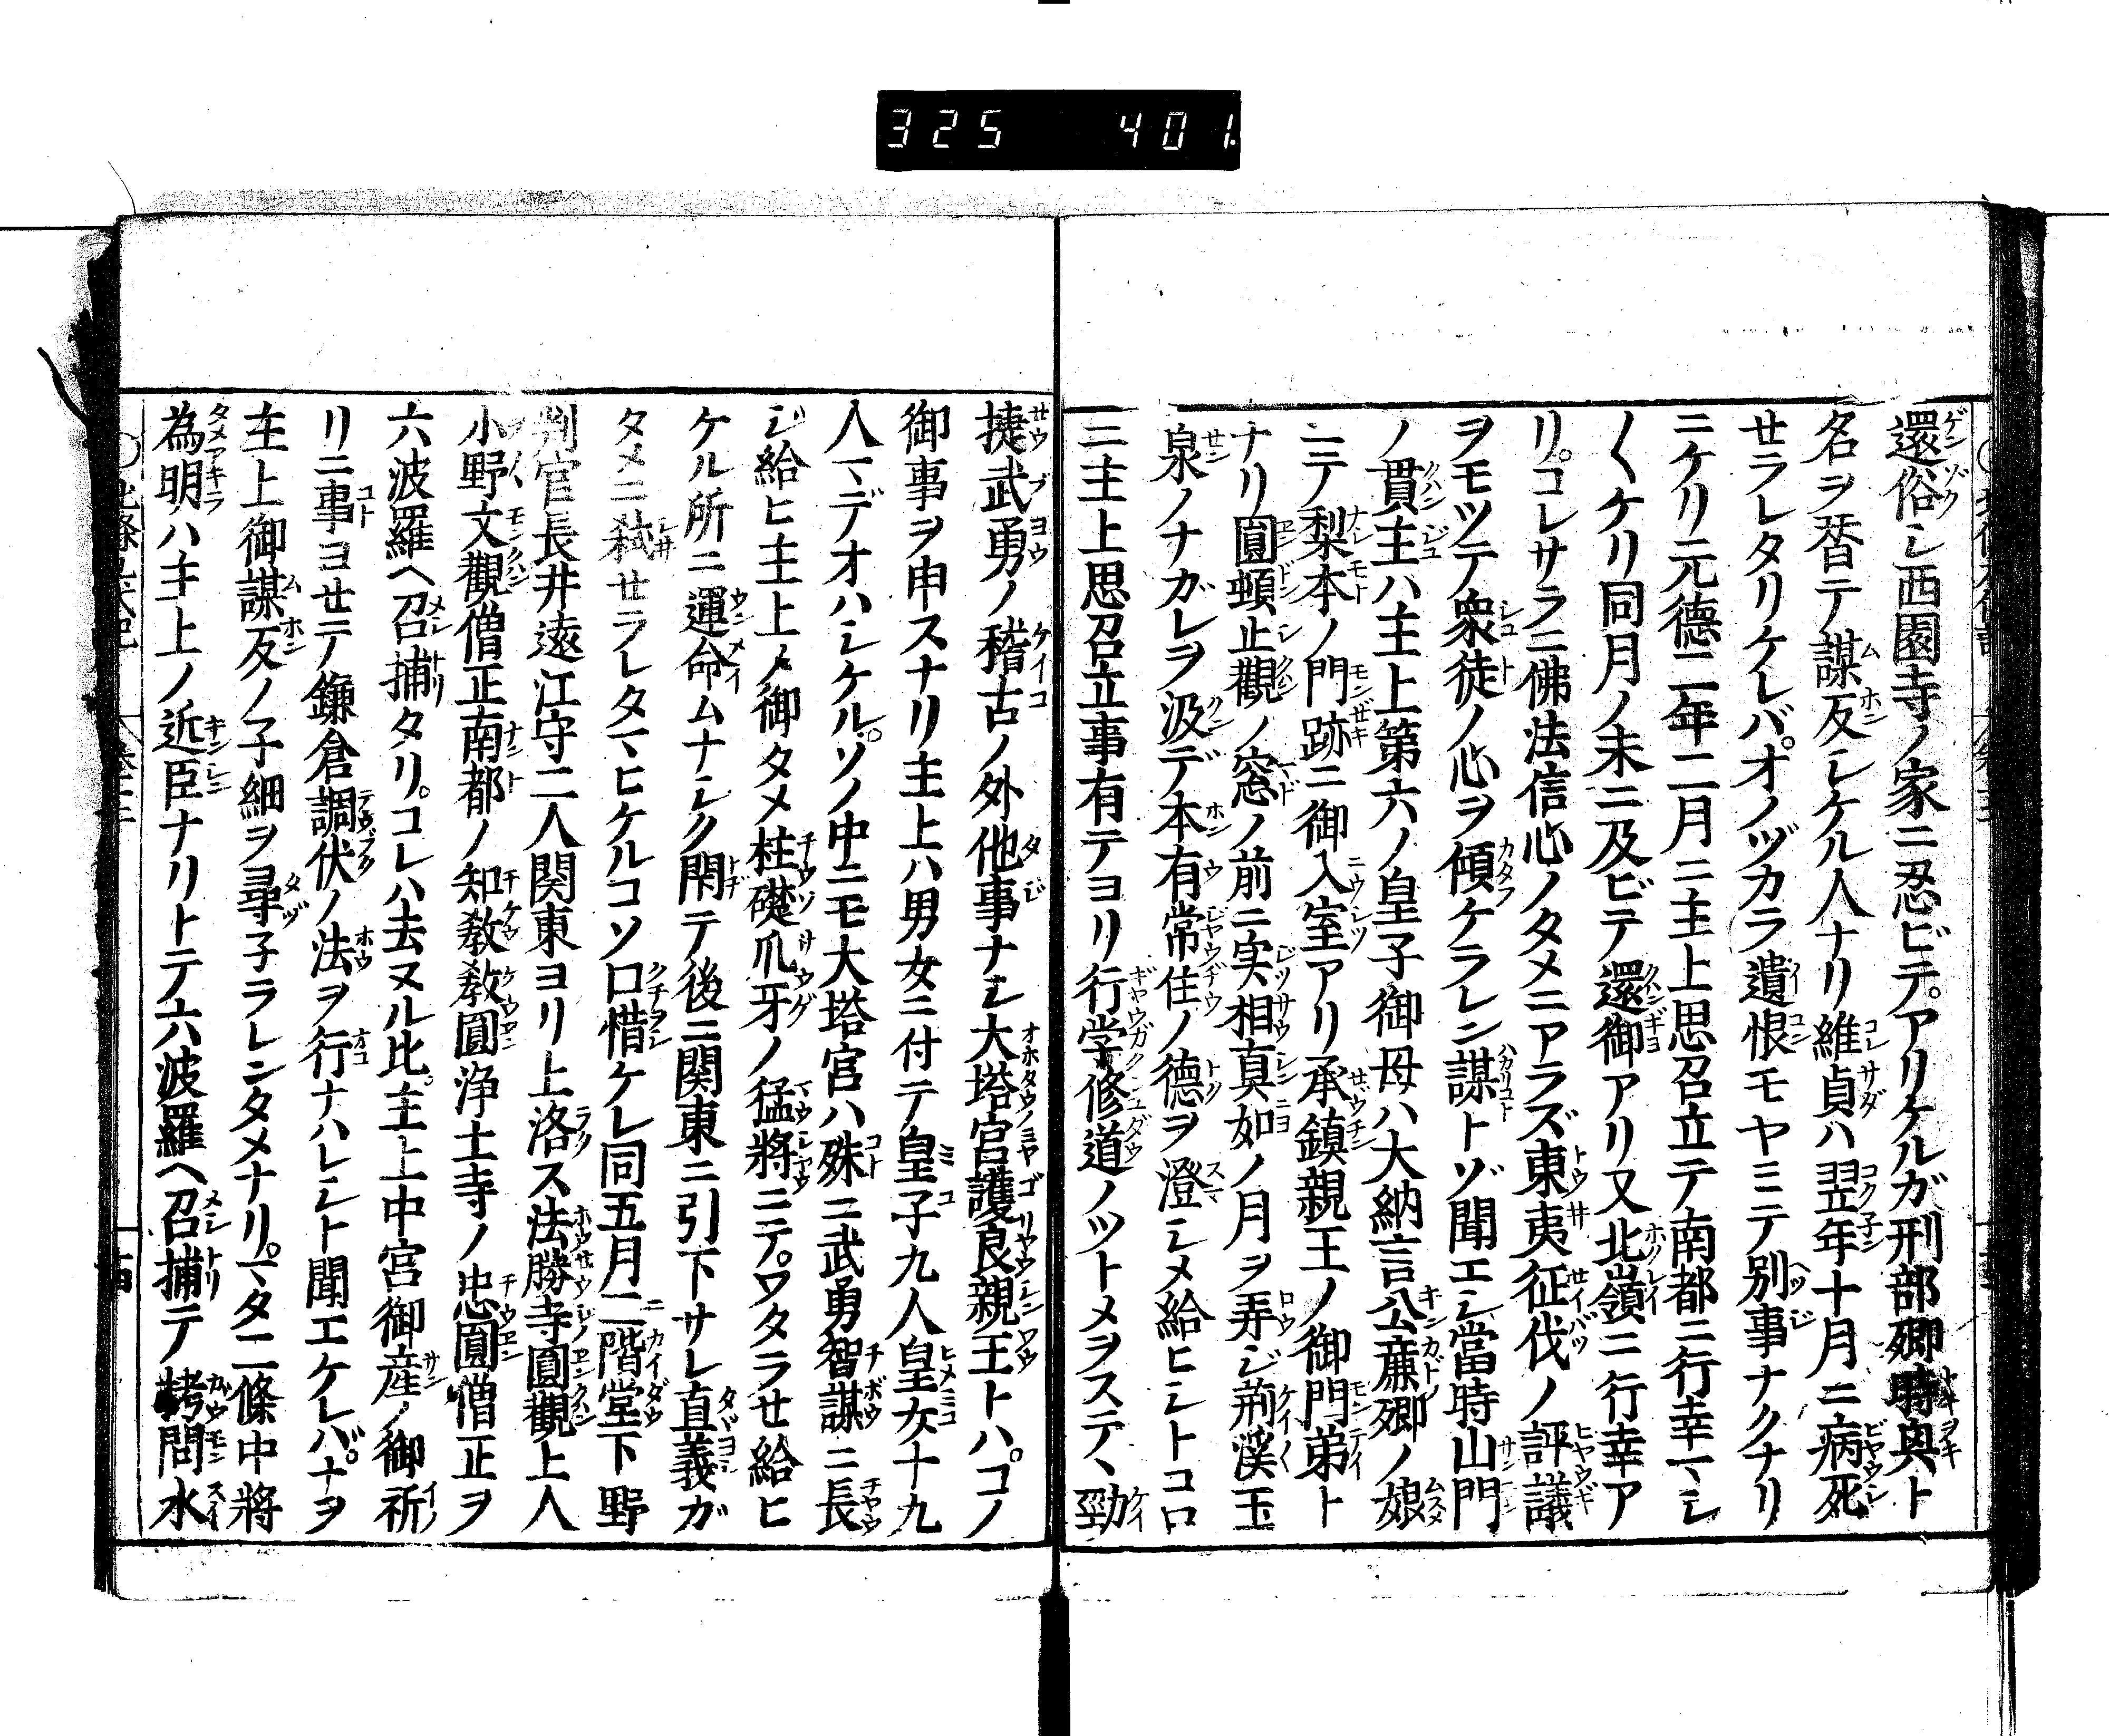 325 401.
還俗シ西園寺ノ家ニ忍ビテ。アリケルガ刑部卿時興ト
名ヲ替テ謀反シケル人ナリ維貞ハ翌年十月ニ病死
セラレタリケレバ。オノヅカラ遺恨モヤミテ別事ナクナリ
ニケリ元德二年二月ニ主上思召立テ南都ニ行幸マシ
〱ケリ同月ノ末ニ及ビテ還御アリ又北嶺ニ行幸ア
リ。コレサラニ佛法信心ノタメニアラズ東夷征伐ノ評議
ヲモツテ衆徒ノ心ヲ傾ケラレン謀トゾ聞エシ當時山門
ノ貫主ハ主上第六ノ皇子御母ハ大納言公廉卿ノ娘
ニテ梨本ノ門跡ニ御入室アリ承鎮親王ノ御門弟ト
ナリ圓頓止觀ノ窓ノ前ニ実相真如ノ月ヲ弄ジ荊溪玉
泉ノナガレヲ汲デ本有常住ノ德ヲ澄シメ給ヒシトコロ
ニ主上思召立事有テヨリ行学修道ノツトメヲステヽ勁
捷武勇ノ稽古ノ外他事ナシ大塔宮護良親王トハ。コノ
御事ヲ申スナリ主上ハ男女ニ付テ皇子九人皇女十九
人マデオハシケル。ソノ中ニモ大塔宮ハ殊ニ武勇智謀ニ長
ジ給ヒ主上ノ御タメ柱礎爪牙ノ猛將ニテ。ワタラせ給ヒ
ケル所ニ運命ムナシク閇テ後ニ関東ニ引下サレ直義ガ
タメニ弑せラレタマヒケルコソ口惜ケレ同五月二階堂下野
判官長井遠江守二人関東ヨリ上洛ス法勝寺圓觀上人
小野文觀僧正南都ノ知教教圓浄土寺ノ忠圓僧正ヲ
六波羅ヘ召捕タリ。コレハ去ヌル比。主上中宮御産ノ御祈
リニ事ヨせテ鎌倉調伏ノ法ヲ行ナハレシト聞エケレバ。ナヲ
主上御謀反ノ子細ヲ尋子ラレンタメナリ。マタ二條中將
為明ハ主上ノ近臣ナリトテ六波羅ヘ召捕テ拷問水